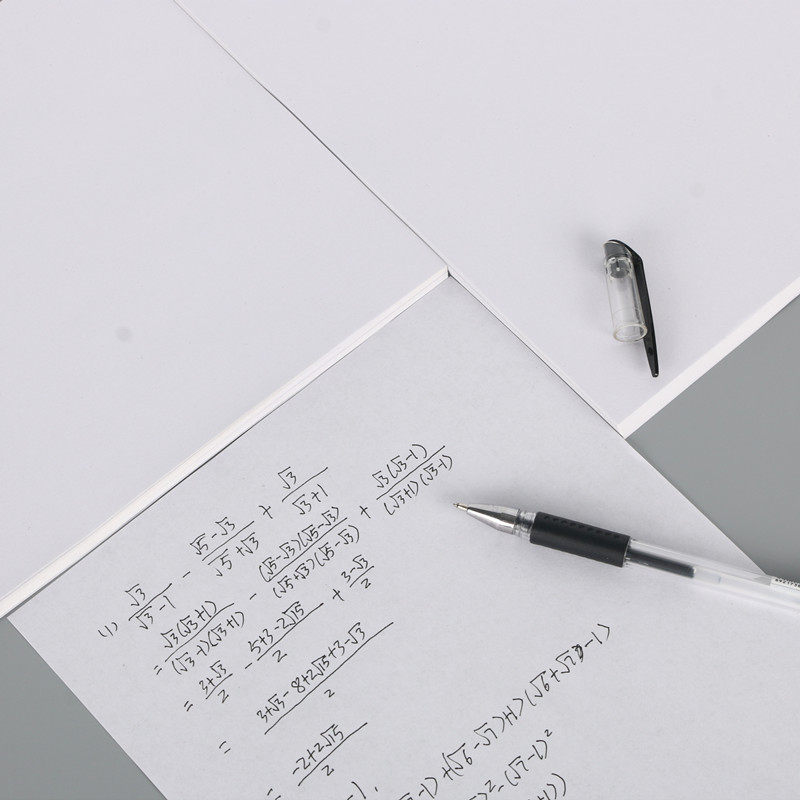 (1) √3/(√3-1) - (√5-√3)/(√5+√3) + √3/(√3+1)
= √3(√3+1)/(√3-1)(√3+1) - (√5-√3)(√5-√3)/(√5+√3)(√5-√3) + √3(√3-1)/(√3+1)(√3-1)
= (3+√3)/2 - (5+3-2√15)/2 + (3-√3)/2
= (3+√3-8+2√15+3-√3)/2
= (-2+2√15)/2
-1) + (√6-√7)+1)(√6+√7-1)
)²-(√7-1)²